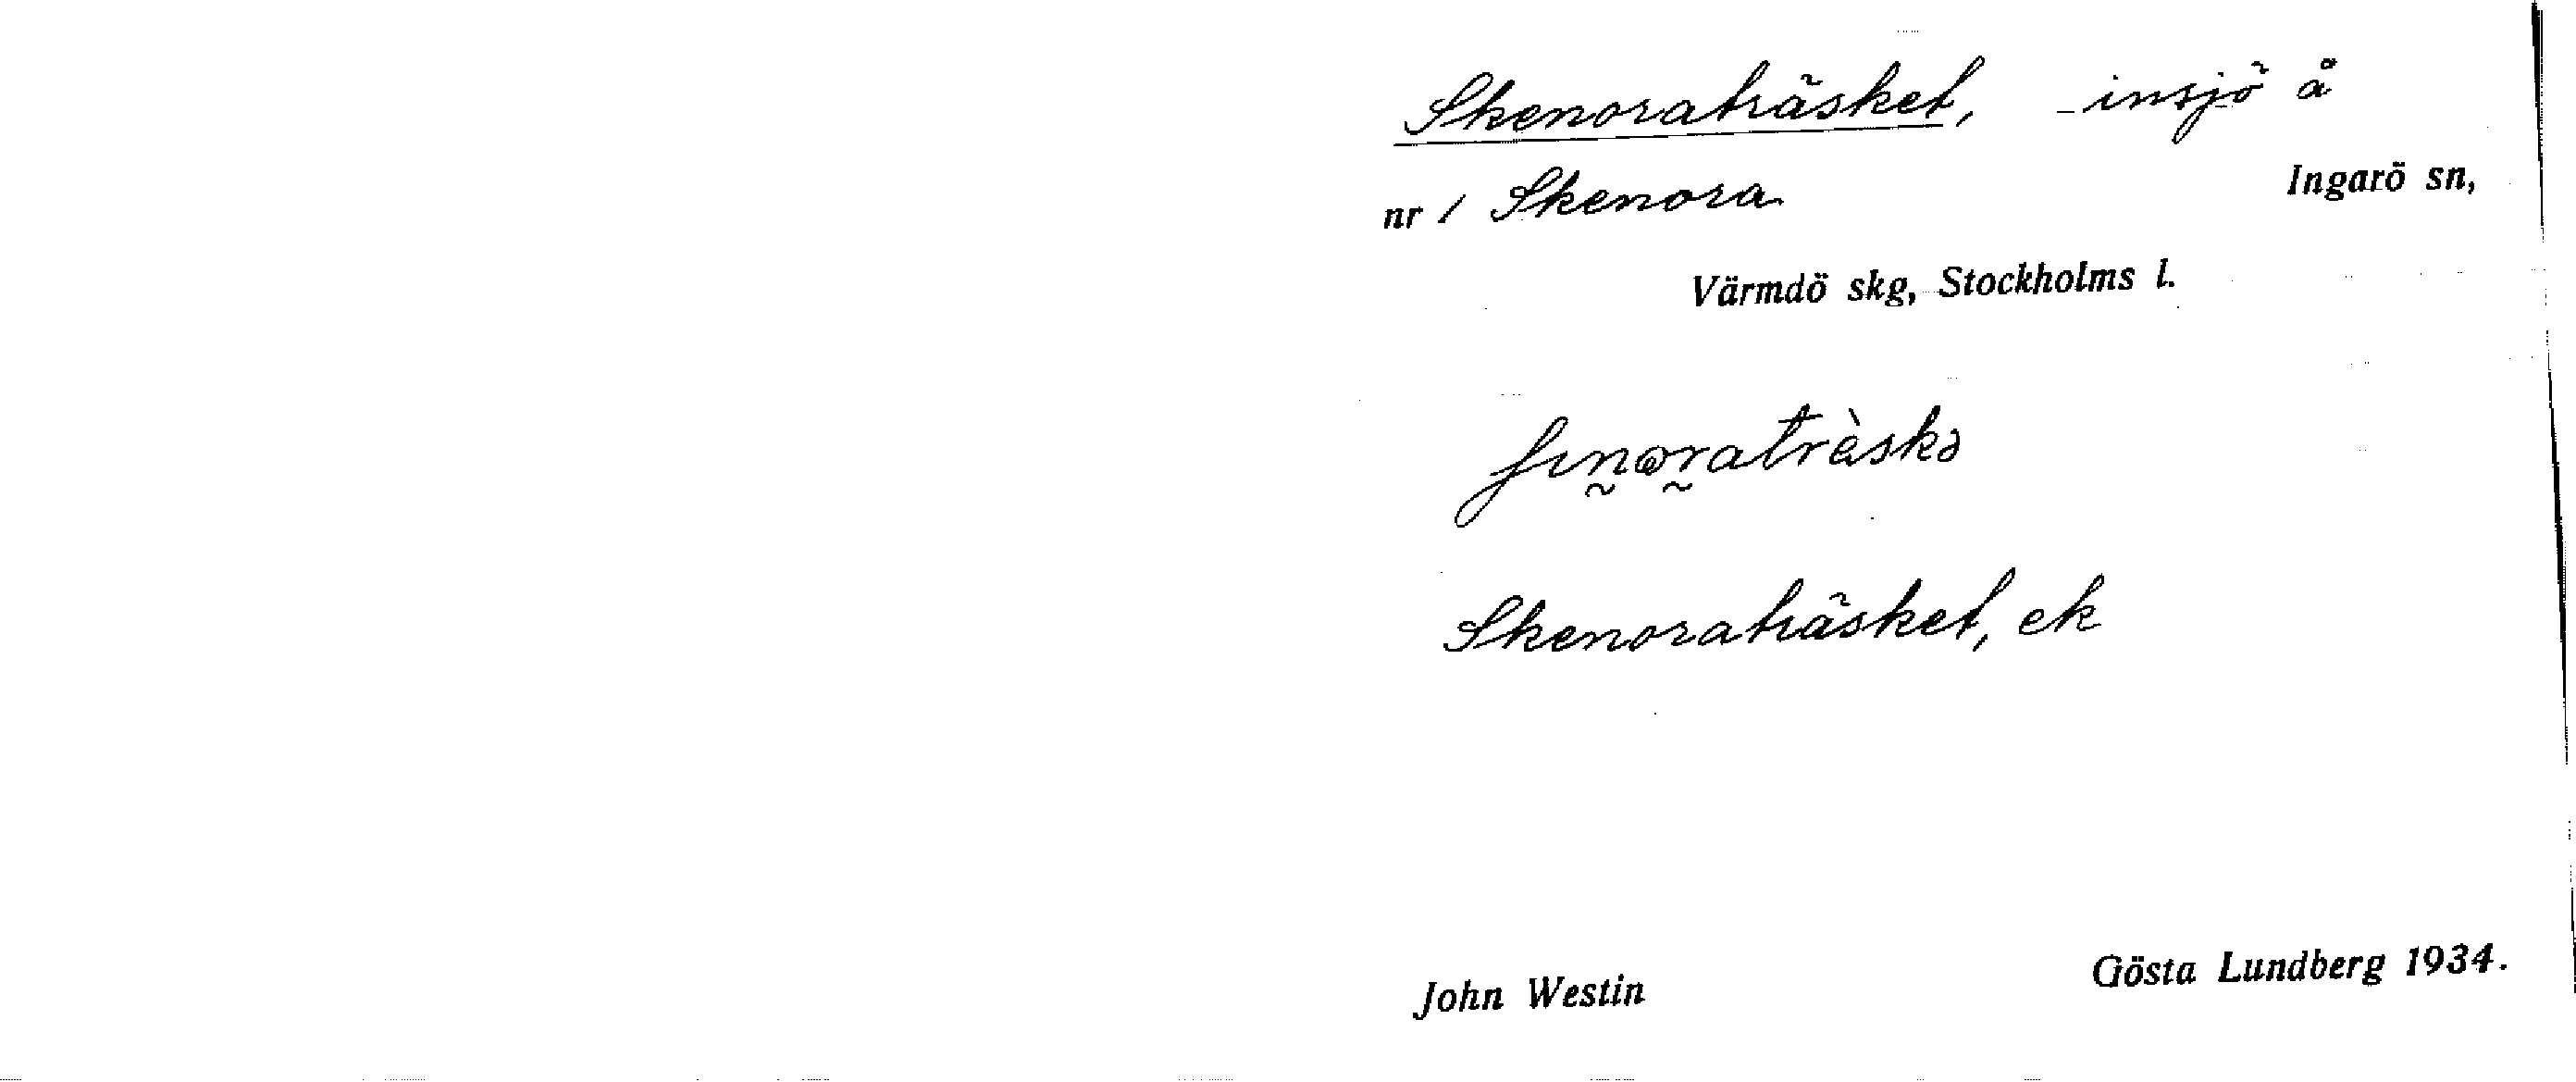 Skenoraträsket, insjö å
nr 1 Skenora Ingarö sn,
Värmdö skg, Stockholms l.
Skenoraträsket, ek
John Westin Gösta Lundberg 1934.